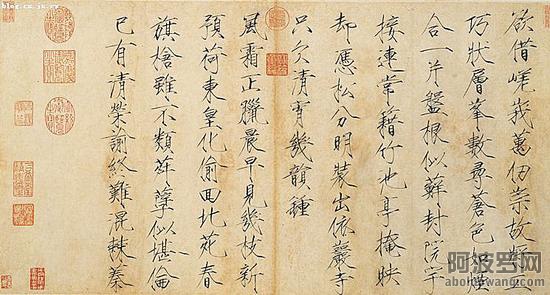 欲借嵯峨萬仞崇故將工
巧狀層峯數尋蒼色如煙
合一片盤根似蘚封院宇
接連常籍竹池亭掩映
却憑松分明裝出依巖寺
只欠清宵幾韻鐘
風霜正臘晨早見幾枝新
預荷東皇化偷回北苑春
旗槍雖不類荈孽似堪倫
已有清榮諭終難混棘蓁
阿波罗网
aboluowang.com